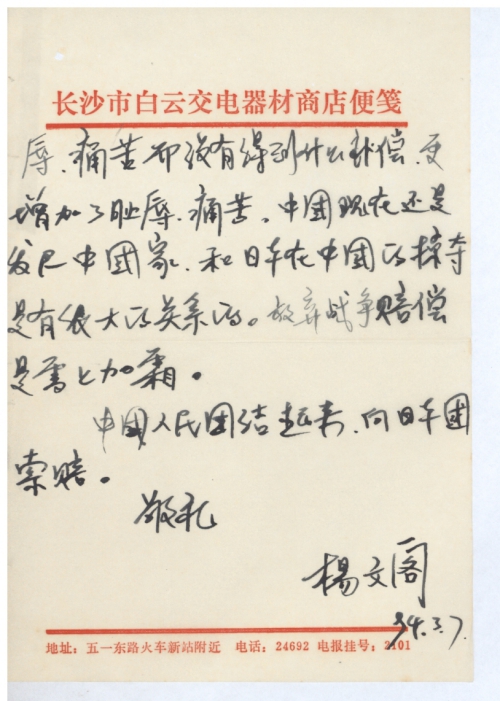 长沙市白云交电器材商店便笺
辱、痛苦却没有得到什么补偿、更
增加了耻辱、痛苦。中國现在还是
发展中國家、和日本在中國的掠夺
是有很大的关系的。放弃战争赔偿
是雪上加霜。
中國人民团结起来、向日本國
索赔。
敬礼
楊文阁
94.3.7.
地址：五一东路火车新站附近 电话：24692 电报挂号：2101